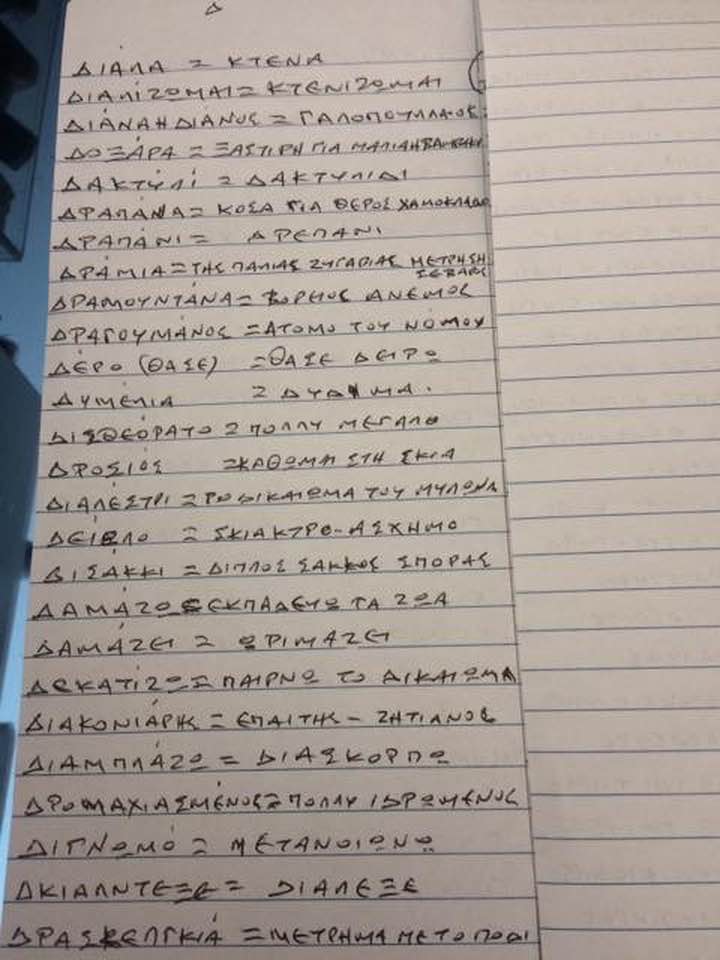 Δ
ΔΙΑΛΑ = ΚΤΕΝΑ
ΔΙΑΛΙΖΩΜΑΙ = ΚΤΕΝΙΖΩΜΑΙ
ΔΙΑΝΑ Η ΔΙΑΝΟΣ = ΓΑΛΟΠΟΥΛΛΑ-ΟΣ
ΔΟΞΑΡΑ = ΞΑΣΤΙΡΗ ΓΙΑ ΜΑΛΙΑ Η
ΔΑΚΤΥΛΙ = ΔΑΚΤΥΛΙΔΙ
ΔΡΑΠΑΝΑ = ΚΟΣΑ ΓΙΑ ΘΕΡΟΣ
ΔΡΑΠΑΝΙ = ΔΡΕΠΑΝΙ
ΔΡΑΜΙΑ = ΤΗΣ ΠΑΛΙΑΣ ΖΥΓΑΡΙΑΣ ΜΕΤΡΗΣΗ
ΔΡΑΜΟΥΝΤΑΝΑ = ΒΟΡΕΙΟΣ ΑΝΕΜΟΣ
ΔΡΑΓΟΥΜΑΝΟΣ = ΑΤΟΜΟ ΤΟΥ ΝΟΜΟΥ
ΔΕΡΟ (ΘΑ ΣΕ) = ΘΑ ΣΕ ΔΕΙΡΩ
ΔΥΜΕΛΙΑ = ΔΥΔΗΜΑ.
ΔΙΣΘΕΟΡΑΤΟ = ΠΟΛΛΥ ΜΕΓΑΛΟ
ΔΡΟΣΙΟΣ = ΚΑΘΩΜΑΙ ΣΤΗ ΣΚΙΑ
ΔΙΑΛΕΣΤΡΙ = ΡΟ ΔΙΚΑΙΩΜΑ ΤΟΥ ΜΥΛΩΝΑ
ΔΕΙΒΛΟ = ΣΚΙΑΚΤΡΟ-ΑΣΧΗΜΟ
ΔΙΣΑΚΚΙ = ΔΙΠΛΟΣ ΣΑΚΚΟΣ ΣΠΟΡΑΣ
ΔΑΜΑΖΩ = ΕΚΠΑΔΕΥΩ ΤΑ ΖΩΑ
ΔΑΜΑΖΕΙ = ΩΡΙΜΑΖΕΙ
ΔΕΚΑΤΙΖΩ = ΠΑΙΡΝΩ ΤΟ ΔΙΚΑΙΩΜΑ
ΔΙΑΚΟΝΙΑΡΗΣ = ΕΠΑΙΤΗΣ - ΖΗΤΙΑΝΟΣ
ΔΙΑΜΠΛΑΖΩ = ΔΙΑΣΚΟΡΠΩ
ΔΡΟΜΑΧΙΑΣΜΕΝΟΣ = ΠΟΛΛΥ ΙΔΡΩΜΕΝΟΣ
ΔΙΓΝΩΜΟ = ΜΕΤΑΝΟΙΩΝΩ
ΔΚΙΑΛΝΤΕΞΕ = ΔΙΑΛΕΞΕ
ΔΡΑΣΚΕΛΓΚΙΑ = ΜΕΤΡΗΜΑ ΜΕ ΤΟ ΠΟΔΙ